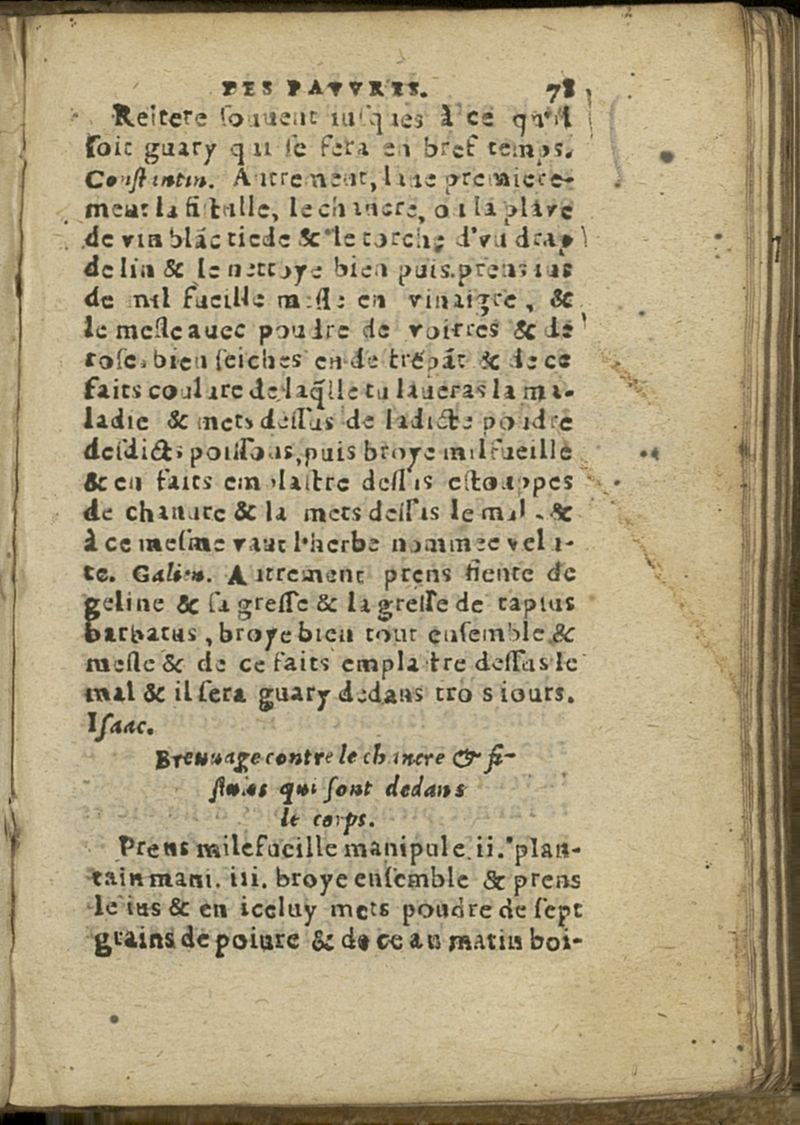 DES PAVVRES. 78
Reïtere souuent iusques à ce qu'il
soit guary qui se fera en bref temps.
Constantin. Autrement, laue premiere-
ment la fistulle, le chancre, ou la playe
de vin blãc tiede & le torche d'vn drap
de lin & le nettoye bien puis prens ius
de mil fueille mesle en vinaigre, &
le mesle auec poudre de voirres & de
roses bien seiches en de trẽpãt & de ce
faits coulure de laq̃lle tu laueras la ma-
ladie & mets dessus de ladicte poudre
desdicts poissons, puis broye milfueille
& en faits emplastre dessus estouppes
de chanure & la mets dessus le mal. &
à ce mesme vaut l'herbe nommee velu-
te. Galien. Autrement prens fiente de
geline & sa gresse & la gresse de tapsus
barbatus, broye bien tout ensemble &
mesle & de ce faits emplastre dessus le
mal & il sera guary dedans trois iours.
Isaac.
Breuuage contre le chancre & fi-
stules qui sont dedans
le corps.
Prens milefueille manipule. ii. plan-
tain mani. iii. broye ensemble & prens
le ius & en iceluy mets poudre de sept
grains de poiure & de ce au matin boi-